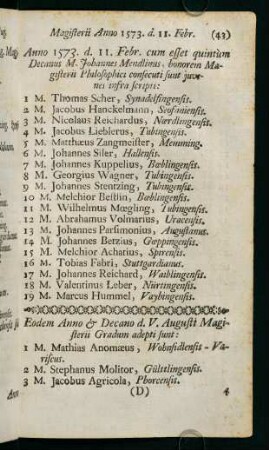 Magisterii Anno 1573. d. 11. Febr. (43)
Anno 1573. d. 11. Febr. cum esset quintùm
Decanus M. Johannes Mendlinus, honorem Ma-
gisterii Philosophici consecuti sunt juve-
nes infra scripti:
1 M. Thomas Scher, Synadelfingensis.
2 M. Jacobus Hanckelmann,
3 M. Nicolaus Reichardus, Nœrdlingensis.
4 M. Jacobus Lieblerus, Tubingensis.
5 M. Matthæus Zangmeister, Memming.
6 M. Johannes Siler, Hallensis.
7 M. Johannes Kuppelius, Bœblingensis.
8 M. Georgius Wagner, Tubingensis.
9 M. Johannes Stentzing, Tubingensis.
10 M. Melchior Bestlin, Bœblingensis.
11 M. Wilhelmus Mœgling, Tubingensis.
12 M. Abrahamus Volmarius, Uracensis.
13 M. Johannes Parsimonius, Augustanus.
14 M. Johannes Berzius, Gœppingensis.
15 M. Melchior Acharius, Spirensis.
16 M. Tobias Fabri, Stuttgardianus.
17 M. Johannes Reichard, Waiblingensis.
18 M. Valentinus Leber, Nürtingensis.
19 M. Marcus Hummel, Vayhingensis.
Eodem Anno & Decano d. V. Augusti Magi-
sterii Gradum adepti sunt:
1 M. Mathias Anomæus, Wohnsidlensis - Va-
riscus.
2 M. Stephanus Molitor, Gültlingensis.
3 M. Jacobus Agricola, Phorcensis.
(D) 4